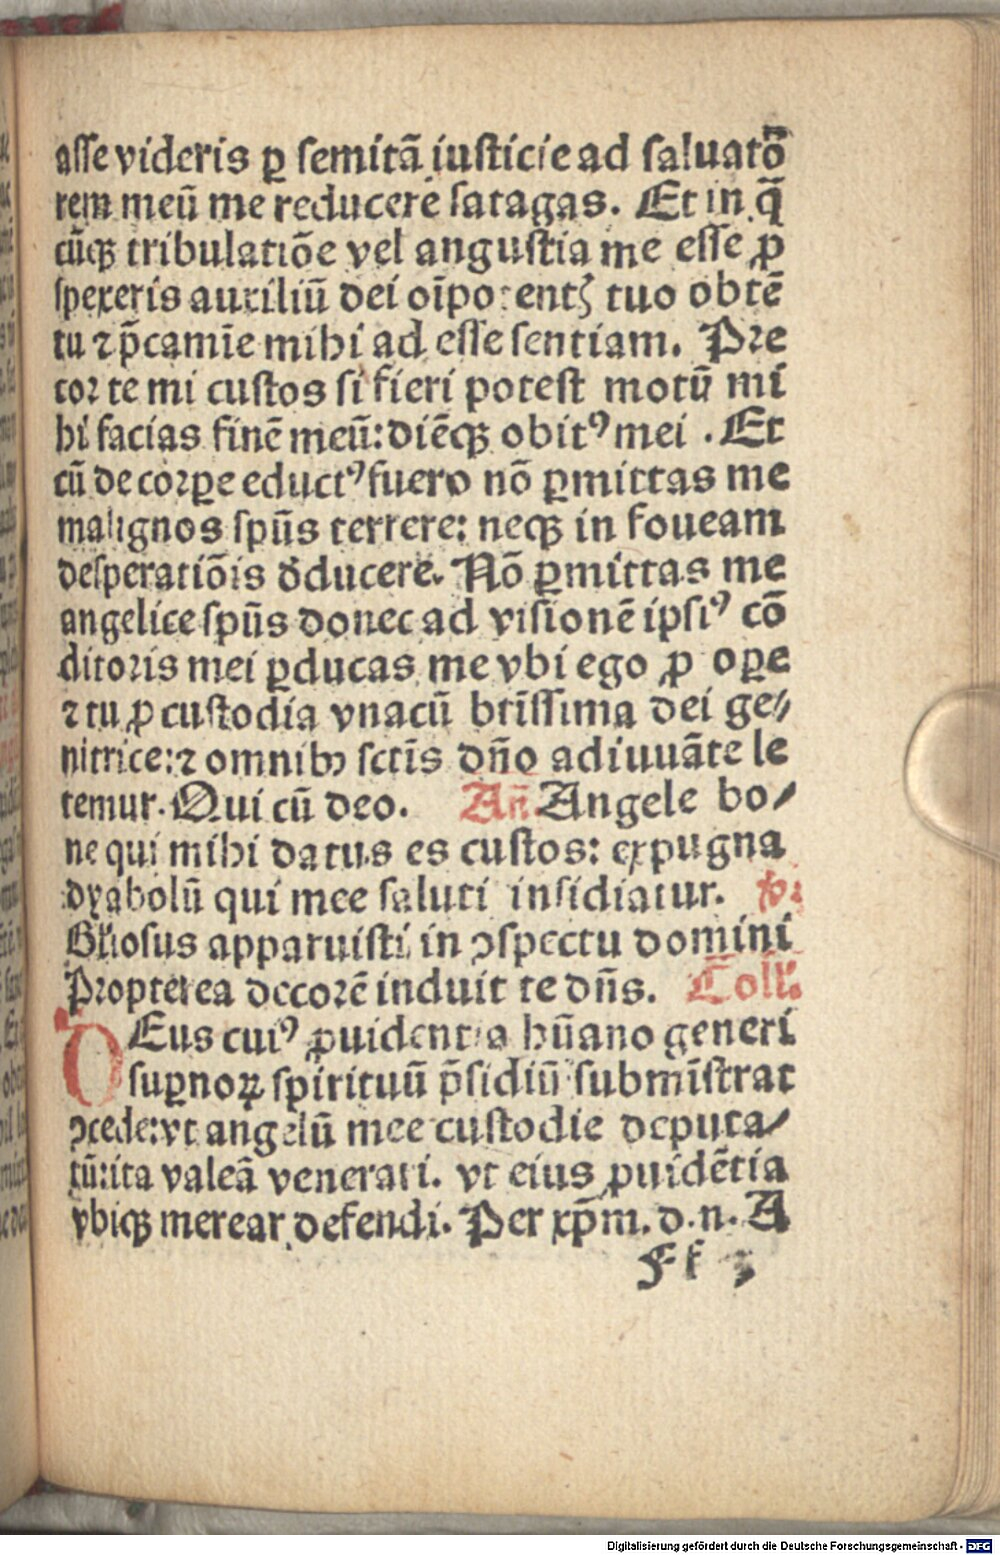 asse videris ꝑ semitā iusticie ad saluatō
rem meū me reducere satagas. Et in q̄
cūqꝫ tribulatiōe vel angustia me esse ꝓ
spexeris auxiliū dei oīpotentꝭ tuo obtē
tu ⁊ p̄camīe mihi ad esse sentiam. Pre
cor te mi custos si fieri potest motū mi
hi facias finē meū: diēqꝫ obitꝰ mei . Et
cū de corꝑe eductꝰ fuero nō ꝑmittas me
malignos spūs terrere: neqꝫ in foueam
desperatiōis d̄ducere. Nō ꝑmittas me
angelice spūs donec ad visionē ipsiꝰ cō
ditoris mei ꝑducas me vbi ego ꝓ oꝑe
⁊ tu ꝓ custodia vnacū btīssima dei ge⸗
nitrice: ⁊ omnibꝫ sctīs dño adiuuāte le
temur. Qui cū deo. Añ. Angele bo⸗
ne qui mihi datus es custos: expugna
dyabolū qui mee saluti insidiatur. ꝟ.
Głiosus apparuisti in ꝯspectu domini
Propterea decorē induit te dñs. Coll'.
DEus cuiꝰ ꝓuidentia hūano generi
suꝑnoꝝ spirituū p̄sidiū submīstrat
ꝯcede: vt angelū mee custodie deputa⸗
tū: ita valeā venerari. vt eius ꝓuidētia
vbiqꝫ merear defendi. Per xp̄m. d. n. A
Ff 3
Digitalisierung gefördert durch die Deutsche Forschungsgemeinschaft - DFG